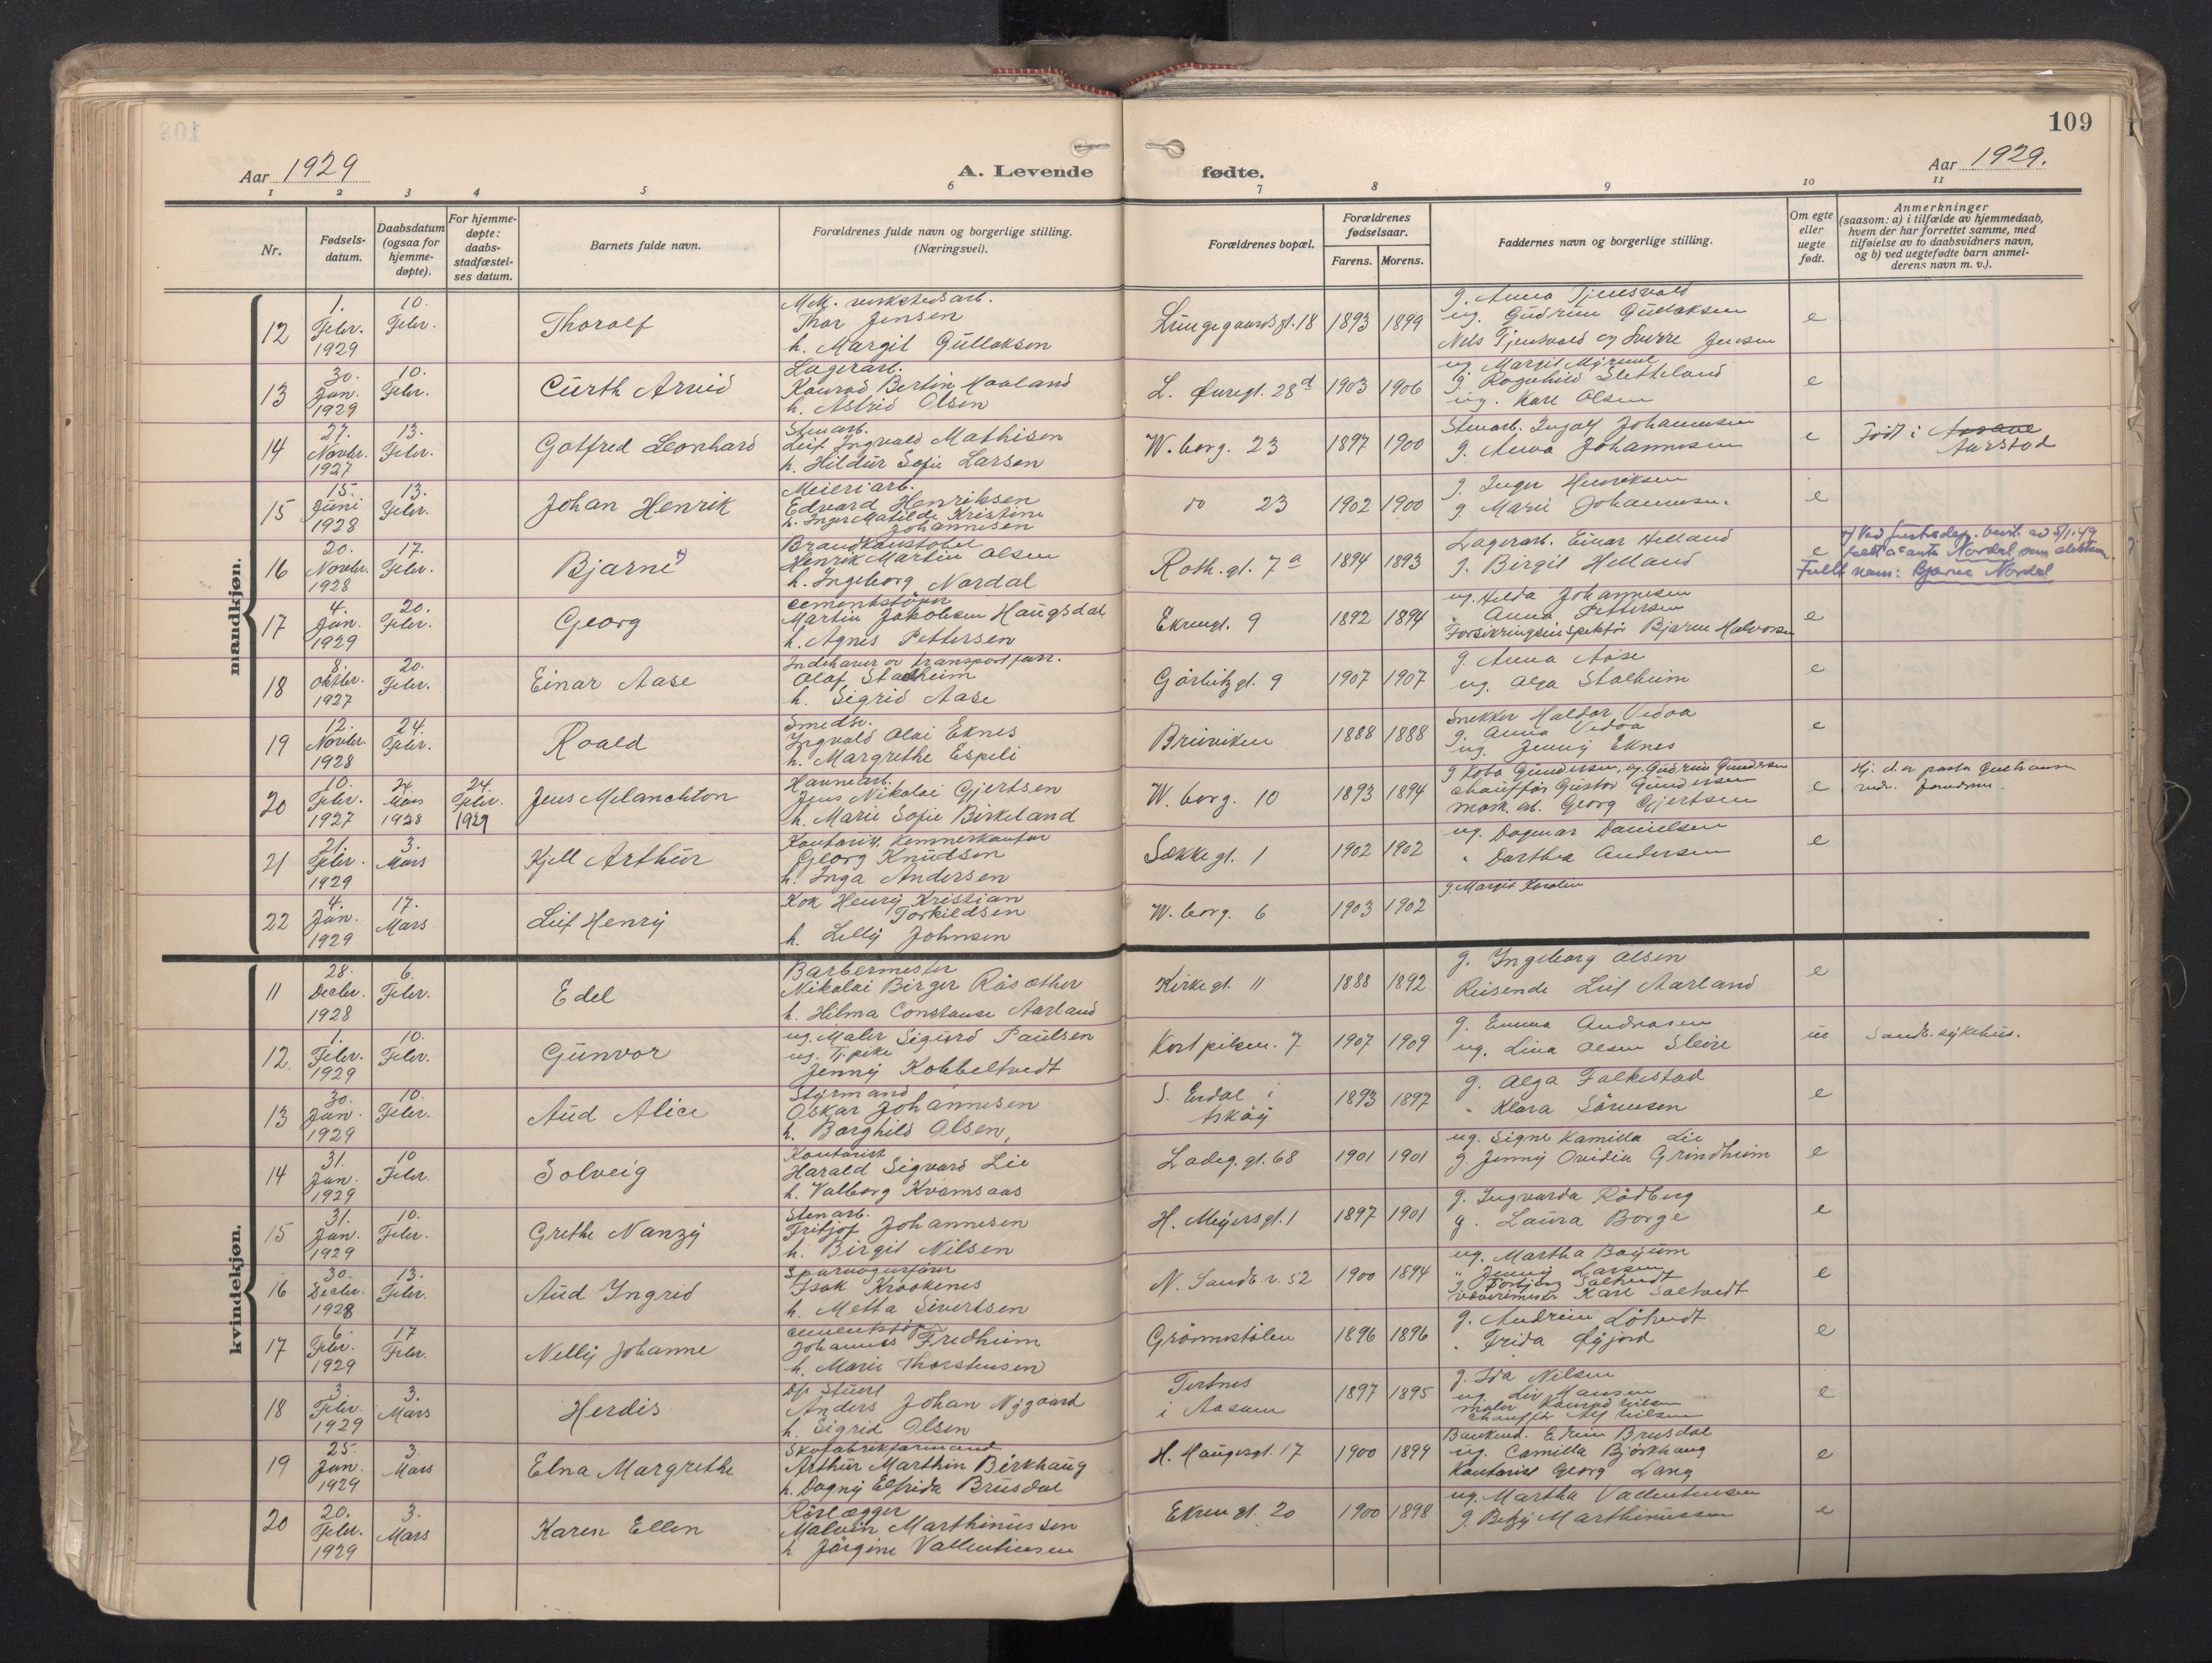 109
Aar 1929
A. Levende fødte.
Aar 1929.
1 2 3 4 5 6 7 8 9 10 11
Nr.
Fødselsdatum.
Daabsdatum (ogsaa for hjemmedøpte).
For hjemmedøpte: daabsstadfæstelses datum.
Barnets fulde navn.
Forældrenes fulde navn og borgerlige stilling. (Næringsvei).
Forældrenes bopæl.
Forældrenes fødselsaar.
Farens. Morens.
Faddernes navn og borgerlige stilling.
Om egte eller uegte født.
Anmerkninger (saasom: a) i tilfælde av hjemmedaab, hvem der har forrettet samme, med tilføielse av to daabsvidners navn, og b) ved uegtefødte barn anmelderens navn m. v.).
mandkjøn.
12 1. Febr. 1929 10. Febr. Thoralf
Mek. verkstedsarb.
Thor Jensen
h. Margit Gullaksen
Lungegaardsgt. 18 1893 1899
g. Anna Tjensvold
ug. Gudrun Gullaksen
Nels Tjensvold og Sverre Jensen
e
13 30. Jan. 1929 10. Febr. Curth Arvid
Lagerarb.
Konrad Bertin Haaland
h. Astrid Olsen
L. Øuregt. 28d 1903 1906
ug. Margit
g. Ragnhild Sletteland
ug. Kare Olsen
e
14 27. Novbr. 1927 13. Febr. Gotfred Leonhard
Stenarb.
Leif Ingvald Mathisen
h. Hildur Sofie Larsen
W. borg. 23 1897 1900
Stenarb. Ingolf Johannesen
g. Anna Johannesen
e
Født i Aarstad
15 15. Juni 1928 13. Febr. Johan Henrik
Meieriarb.
Edvard Henriksen
h. Inger Matilde Kristine
Johannesen
do 23 1902 1900
g. Inger Henriksen
g. Marie Johannesen
e
16 20. Novbr. 1928 17. Febr. Bjarne
Brandkonstabel
Henrik Martin Olsen
h. Ingeborg Nordal
Roth. gt. 7a 1894 1893
Lagerarb. Einar Helland
g. Birgit Helland
e
Ved justisdep. bevil. av 5/1.49
Nordal som slektsn.
Fullt navn: Bjarne Nordal
17 4. Jan. 1929 20. Febr. Georg
cementstøper
Martin Jakobsen Haugsdal
h. Agnes Pettersen
Ekrengt. 9 1892 1894
ug. Hilda Johannesen
" Anna Pettersen
Forsikringsinspektør Bjarne Halvorsen
e
18 8. Oktbr. 1927 20. Febr. Einar Aase
Indehaver av transportforr.
Olaf Stalheim
h. Sigrid Aase
Görbitzgt. 9 1907 1907
g. Anna Aase
ug. Olga Stalheim
e
19 12. Novbr. 1928 24. Febr. Roald
Smedsv.
Ingvald Olai Eknes
h. Margrethe Espeli
Bruviken 1888 1888
Snekker Haldor Vedaa
g. Anna Vedaa
ug. Jenny Eknes
e
20 10. Febr. 1927 24. Mars 1928 24. Febr. 1929 Jens Melanchton
Havnearb.
Jens Nikolai Gjertsen
h. Marie Sofie Birkeland
W. borg. 10 1893 1894
g. Gundersen, ug. Gudrun Gundersen
chauffør Gustav Gundersen
mask. arb. Georg Gjertsen
e
21 21. Febr. 1929 3. Mars Kjell Arthur
Kontorist, kemnerkontor
Georg Knudsen
h. Inga Andersen
Sækkegt. 1 1902 1902
ug. Dagmar Danielsen
" Dorthea Andersen
e
22 4. Jan. 1929 17. Mars Leif Henry
Kok Henry Kristian
Torkildsen
h. Lelly Johnsen
W. borg. 6 1903 1902
g. Margit Karolin
kvindekjøn.
11 28. Decbr. 1928 6. Febr. Edel
Barbermester
Nikolai Birger Råsæther
h. Hilma Constanse Aarland
Kirkegt. 11 1888 1892
g. Ingeborg Olsen
Reisende Leif Aarland
e
12. 1. Febr. 1929 10. Febr. Gunvor
ug. Maler Sigurd Paulsen
ug. Tj.pike
Jenny Kobbeltvedt
Kortpilsm. 7 1907 1909
g. Emma Andreasen
ug. Lina Olsen Sleire
ue
Sandv. sykehus.
13 30. Jan. 1929 10. Febr. Aud Alice
Styrmand
Oskar Johannesen
h. Borghild Olsen
S. Erdal i
Askøy 1893 1897
g. Olga Falkestad
" Klara Sörensen
e
14 31. Jan. 1929 10 Febr. Solveig
Kontorist
Harald Sigvard Lie
h. Valborg Kvamsaas
Ladeg. gt. 68 1901 1901
ug. Signe Kamilla Lie
g. Jenny Ovidia Grindheim
e
15 31. Jan. 1929 10. Febr. Grethe Nanzy
Stenarb.
Fritjof Johannesen
h. Birgit Nilsen
H. Meyersgt. 1 1897 1901
g. Ingvarda Rödberg
g. Laura Borge
e
16 30. Decbr. 1928 13. Febr. Aud Ingrid
Sporvognsfører
Isak Kraakenes
h. Metta Sivertsen
N. Sandv. v. 52 1900 1894
ug. Martha Bøyum
" Jenny Larsen
g. Torbjørg Saltvedt
værimester Kare Saltvedt
e
17 6. Febr. 1929 17 Febr. Nelly Johanne
cementstøp.
Johannes Fredheim
h. Marie Thorstensen
Grønnestølen 1896 1896
g. Andrine Löhvedt
" Frida Øyjord
e
18 3. Febr. 1929 3. Mars Herdis
D/s Stuert
Anders Johan Nygaard
h. Sigrid Olsen
Tertnes
i Aasane 1897 1895
g. Ida Nilsen
ug. Liv Hansen
maler Konrad Nilsen
chauffør Alf Nilsen
e
19 25. Jan. 1929 3. Mars Elna Margrethe
Skofabrikformand
Arthur Marthin Birkhaug
h. Dagny Elfrida Brusdal
H. Haugesgt. 17 1900 1899
Bankend. Edvin Brusdal
ug. Camilla Bjørkhaug
Kontorist Georg Lang
e
20 20. Febr. 1929 3. Mars Karen Ellen
Rörlægger
Malvin Marthinussen
h. Jørgine Vallentinsen
Ekren gt. 20 1900 1898
ug. Martha Vallentinsen
g. Betzy Marthinussen
e